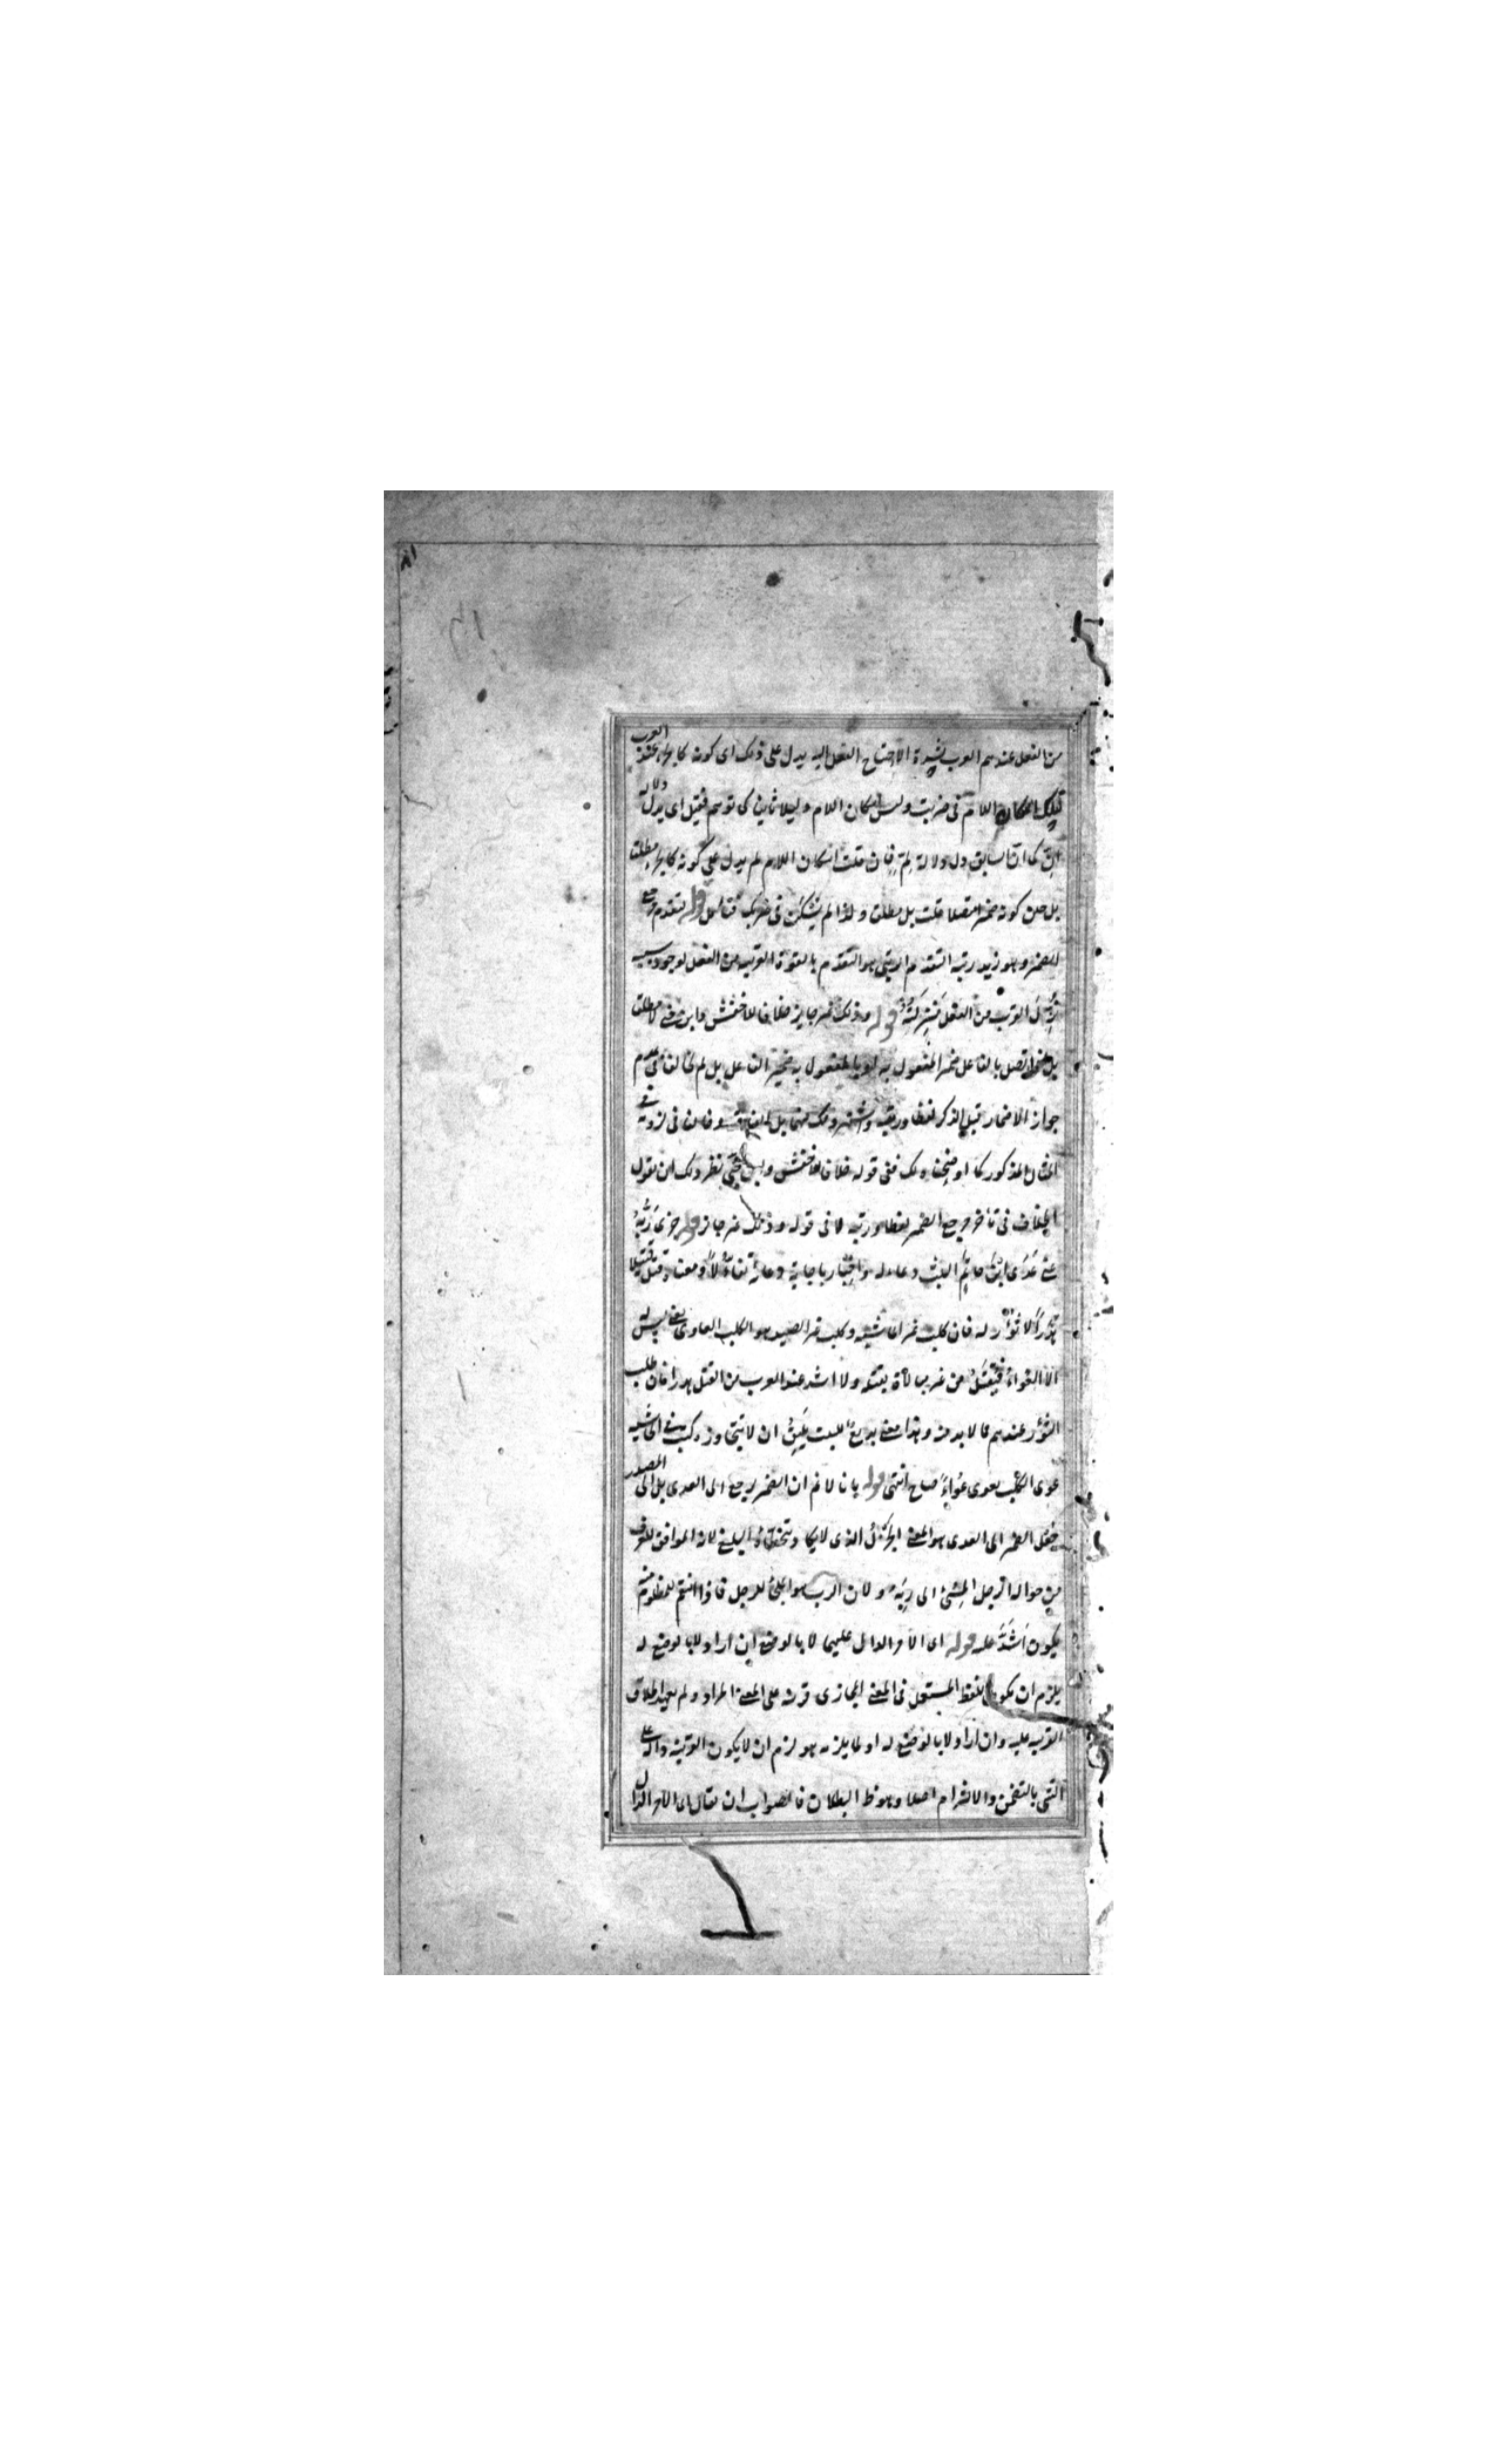 ٨١
من الفعل عندهم القرب بشدة الاحتياج الفعل اليه يدل على ذلك اى كونه كالجزء عند العرب
تلك اسكان اللام فى ضربت وليس اسكان اللام دليلا ثانيا كما توهم فقيل اى يدل دلالة
كما ان السابق دل دلالة فان قلت اسكان اللام لم يدل على كونه كالجزء مطلقا
بل حين كونه ضميرا متصلا قلت بل مطلق ولذا لم يسكن فى ضربك فتأمل قوله لتقدم مرجع
الضمير وهو زيد رتبة التقدم الرتبى هو التقدم بالقوة القريبة من الفعل لوجود سببه
القرب من الفعل منزلته قوله وذلك غير جايز خلافا للاخفش وابن جنى لا مطلقا
بل اتصل بالفاعل ضمير المفعول به او بالمفعول به ضمير الفاعل بل لم يخالفا فى عدم
جواز الاضمار قبل الذكر لفظا ورتبة فى
المثال المذكور كما اوضحنا ذلك ففى قوله خلافا للاخفش وابن جنى نظر ولك ان تقول
الخلاف فى تأخر مرجع الضمير لفظا ورتبة لا فى قوله وذلك غير جايز قوله جزى ربه
عنى عدى ابن حاتم البيت دعاء له واخبار باجابة دعائه تفاؤلا ومعناه قتل قتيلا
هدرا لا ثؤر له فان كلب غير الماشية وكلب غير الصيد هو الكلب العاوى يعنى ليس له
الا العواء فيقتل من غير مبالاة بقتله ولا اشد عند العرب من القتل هدرا فان طلب
الثؤر عندهم مما لا بد منه وهذا معنى بديع للبيت يليق ان لا يتجاوز كتب فى الحاشية
عوى الكلب يعوى عواء صاح انتهى قوله بانا لا نم ان الضمير يرجع الى العدى بل الى المصدر
جعل الضمير الى العدى هو المعنى الجزل الذى لا يكاد يتخطاه البليغ لانه الموافق للعرف
من حوالة الرجل المسئ الى ربه ولان الرب هو الملجأ للرجل فاذا انتقم للمظلوم منه
يكون اشد عليه قوله اى الامر الدال عليهما لا بالوضع ان اراد لا بالوضع له
يلزم ان يكون اللفظ المستعمل فى المعنى المجازى قرينة على المعنى المراد ولم يعهد اطلاق
القرينة عليه وان اراد لا بالوضع له او لما يلزمه هو لزم ان لا يكون القرينة دالة على
الشئ بالتضمن والالتزام اصلا وهو ظ البطلان فالصواب ان يقال اى الامر الدال